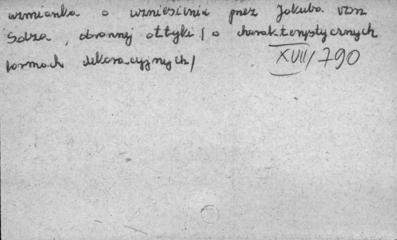 wzmianka o wzniesieniu przez Jakuba von
Sobza, obronnej attyki / o charakterystycznych
formach dekoracyjnych / XVII/790